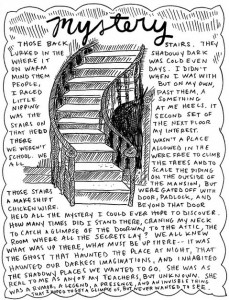 mystery
THOSE BACK STAIRS. THEY
LURKED IN THE SHADOWY DARK
WHERE IT WAS COLD EVEN
ON WARM DAYS. I DIDN'T
MIND THEM WHEN I WAS WITH
PEOPLE, BUT ON MY OWN,
I RACED PAST THEM, A
LITTLE SOMETHING
NIPPING AT MY HEELS. IT
WAS THE SECOND SET OF
STAIRS ON THE NEXT FLOOR
THAT HELD MY INTEREST.
THERE WASN'T A PLACE
WE WEREN'T ALLOWED IN THE
SCHOOL. WE WERE FREE TO CLIMB
ALL THE TREES AND TO
SCALE THE SIDING
ON THE OUTSIDE OF
THE MANSION, BUT
THOSE STAIRS WERE GATED OFF WITH
A MAKESHIFT DOOR, PADLOCK, AND
CHICKEN WIRE. BEYOND THAT DOOR
HELD ALL THE MYSTERY I COULD EVER HOPE TO DISCOVER.
HOW MANY TIMES DID I STAND THERE, CRANING MY NECK
TO CATCH A GLIMPSE OF THE DOORWAY TO THE ATTIC, THE
ROOM WHERE ALL THE SECRETS LAY? WE ALL KNEW
WHAT WAS UP THERE, WHAT MUST BE UP THERE—IT WAS
THE GHOST THAT HAUNTED THE PLACE AT NIGHT, THAT
HAUNTED OUR DARKEST IMAGINATIONS, AND INHABITED
THE SHADOWY PLACES WE WANTED TO GO. SHE WAS AS
REAL TO ME AS ANY OF MY TEACHERS, BUT UNKNOWN. SHE
WAS A RUMOR, A LEGEND, A PRESENCE, AND AN INVISIBLE THING
THAT I HOPED TO GET A GLIMPSE OF, BUT NEVER WANTED TO SEE.